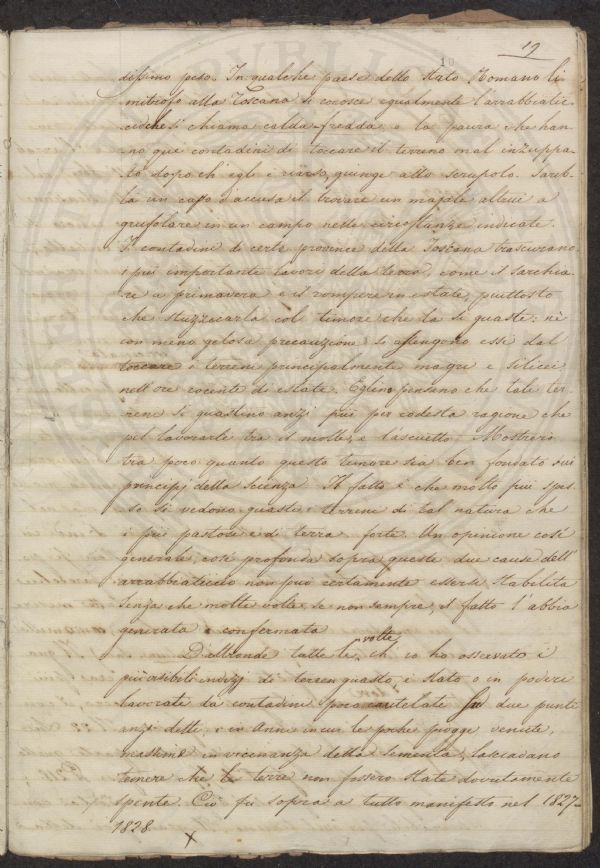 19
10
dissimo peso. In qualche paese dello stato Romano li
mitrofo alla Toscana si conosce egualmente l'arrabbiatic
cio che si chiama calda-fredda, e la paura che han-
no quei contadini di toccare il terreno mal inzuppa-
to dopo ch'egli è riarso, giunge allo scrupolo. Sareb-
be un capo d'accusa il trovare un majale altrui a
grufolare in un campo nelle circostanze indicate.
I contadini di certe province della Toscana trascurano
i più importanti lavori della terra, come il sarchia-
re a primavera e il rompere in estate, piuttosto
che stuzzicarla col timore che la si guaste: nè
con meno gelosa precauzione si astengono essi dal
toccare i terreni principalmente magri e silicei
nell'ore cocente di estate. Eglino pensano che tale ter-
reno si guastino anzi più per codesta ragione che
pel lavorarli tra il molle, e l'asciutto. Mostrerò
tra poco quanto questo timore sia ben fondato sui
principj della Scienza. Il fatto è che molto più spes-
so si vedono guasti i terreni di tal natura che
i più pastosi e di terra forte. Un opinione così
generale, così profonda sopra queste due cause dell'
arrabbiaticcio non può certamente essersi stabilita
senza che molte volte, se non sempre, il fatto l'abbia
generata e confermata
Dall'onde tutte le volte, ch'io ho osservato i
più visibili indizj di terren guasto, è stato o in poderi
lavorati da contadini poco cautelati su due punti
anzi detti, o in Anni in cui le poche piogge venute,
massime in vicinanza della sementa, lasciavano
temere che le terre non fossero state dovutamente
spente. Ciò fu sopra a tutto manifesto nel 1827-
1828.